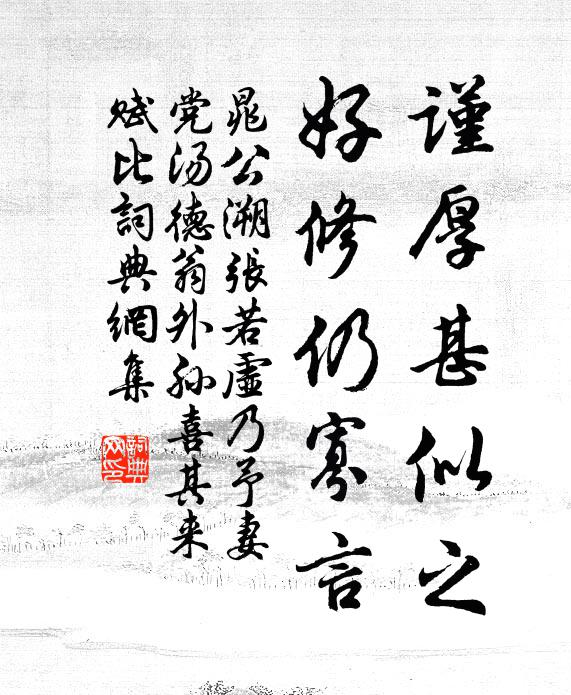 謹厚甚似之
好修仍寡言
晁公溯張若虛乃予妻
党汤德翁外孙喜其来
赋比詞典網集
詞典网印